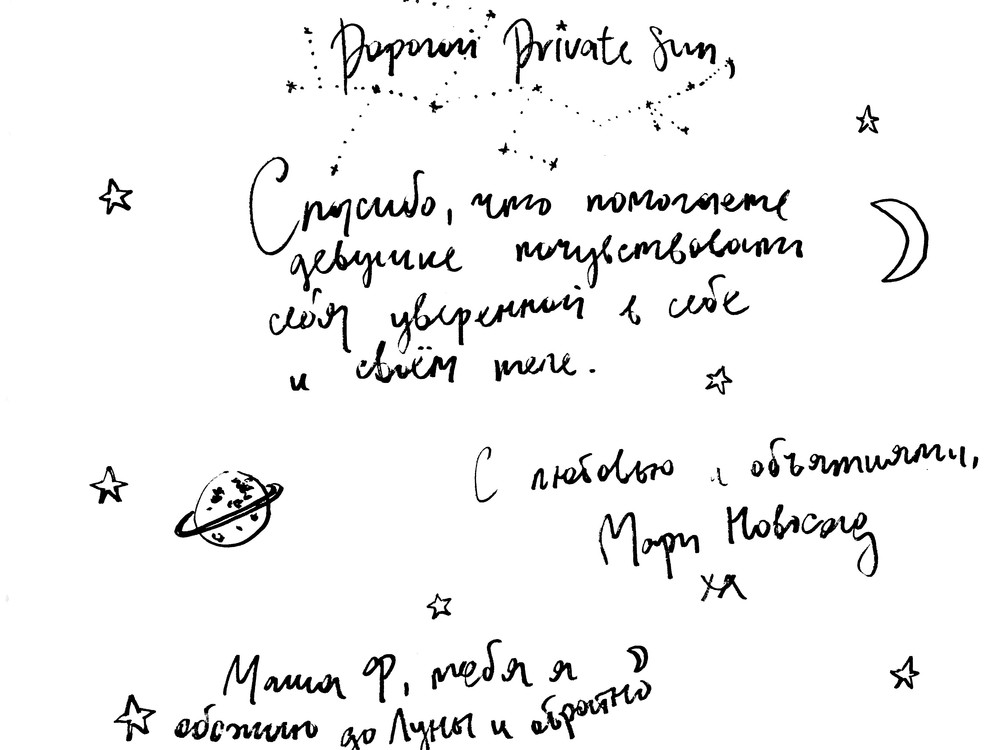 Дорогой Private Sun,
Спасибо, что помогаете
девушке почувствовать
себя уверенной в себе
и своём теле.
С любовью и объятиями,
Мари Новосад
Маша Ф, тебя я
обожаю до Луны и обратно